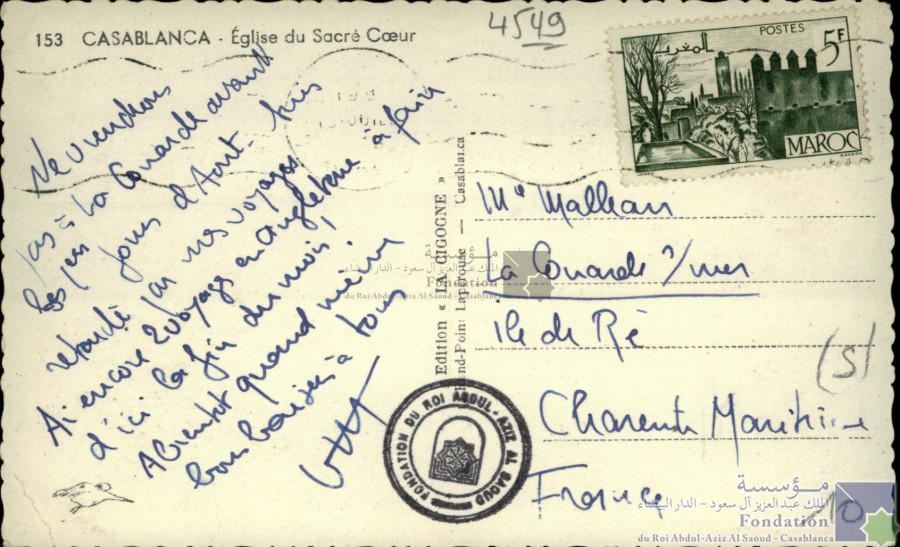 4549
153 CASABLANCA - Église du Sacré Cœur
Ne viendrons
pas à La Couarde avant
les jours d'Aout - suis
retardé par mes voyages
Ai encore 2 voyages en Angleterre à faire
d'ici la fin du mois!
A bientot quand même
bons baisers à tous
Edition « LA CIGOGNE »
Hand-Point Lapérouse — Casablanca
المغرب
POSTES
5F
MAROC
Me Mallean
La Couarde s/mer
Ile de Ré
Charente Maritime
France
(S)
10
FONDATION DU ROI ABDUL-AZIZ AL SAOUD
مؤسسة
الملك عبد العزيز آل سعود - الدار البيضاء
Fondation
du Roi Abdul-Aziz Al Saoud - Casablanca
مؤسسة
الملك عبد العزيز آل سعود - الدار البيضاء
Fondation
du Roi Abdul-Aziz Al Saoud - Casablanca